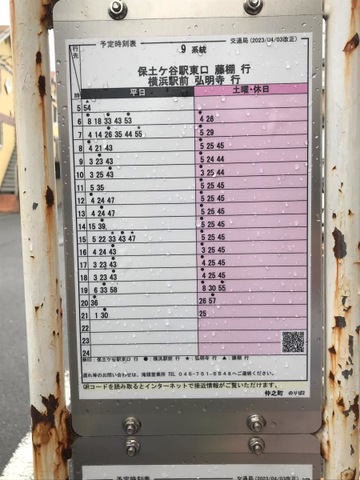 予定時刻表
交通局(2023/04/03改正)
9 系統
行先
保土ケ谷駅東口 藤棚 行
横浜駅前 弘明寺 行
時 平日 土曜・休日
5 54
6 8 18 33 43 53 4 26
7 4 14 26 35 44 55 5 29
8 4 21 43 5 25 45
9 3 23 43 5 24 44
10 3 25 43 3 25 44
11 5 35 5 25 45
12 4 24 47 5 25 45
13 4 24 47 5 25 45
14 15 39 5 25 45
15 5 22 33 43 47 5 25 45
16 3 23 43 5 25 45
17 3 23 43 4 25 45
18 3 23 43 4 25 45
19 6 33 58 8 30 55
20 36 26 57
21 1 30 25
22
23
24
無印:保土ケ谷駅東口 行 ● 横浜駅前 行 ★ 弘明寺 行 ▲ 藤棚 行
QRコードを読み取るとインターネットで接近情報がご覧いただけます。
仲之町 のりば
予定時刻表
交通局(2023/04/03改正)